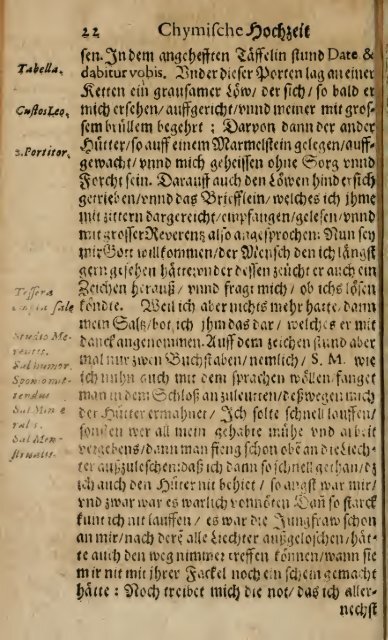 22 Chymische Hochzeit
sen. In dem angehefften Täffelin stund Date &
Tabella.
dabitur vobis. Vnder dieser Porten lag an einer
Ketten ein grausamer Löw/ der sich/ so bald er
Custos Leo.
mich ersehen/ auffgericht/ vnnd meiner mit gros-
sem brüllem begehrt : Darvon dann der ander
2. Portitor.
Hütter/ so auff einem Marmelstein gelegen/ auff-
gewacht/ vnnd mich geheissen ohne Sorg vnnd
Forcht sein. Darauff auch den Löwen hindersich
getrieben/ vnnd das Briefflein/ welches ich ihme
mit zittern dargereicht/ empfangen/ gelesen/ vnnd
mit grosser Reverentz also angesprochen: Nun sey
mir Gott willkommen/ der Mensch den ich längst
gern gesehen hätte: vnder dessen zeücht er auch ein
Tessera
Zeichen herauß/ vnnd fragt mich/ ob ichs lösen
empta sale
köndte. Weil ich aber nichts mehr hatte/ dann
mein Saltz/ bot ich ihm das dar/ welches er mit
Studio Me-
danck angenommen. Auff dem zeichen stund aber
rentis.
mal nur zwen Buchstaben/ nemlich/ S. M. wie
Sal humor.
ich nuhn auch mit dem sprachen wöllen/ fanget
Sponso mit-
man in dem Schloß an zuleutten/ deßwegen mich
tendus
Sal Mine
der Hütter ermahnet/ Ich solte schnell lauffen/
ralis.
sonsten wer all mein gehabte mühe vnd arbeit
Sal Men-
vergebens/ dann man fieng schon oben an die Liech-
strualis.
ter außzuleschen: daß ich dann so schnell gethan/ dz
ich auch den Hüter nit behiet/ so angst war mir/
vnd zwar war es warlich vonnöten Dañ so starck
kunt ich nit lauffen/ es war die Jungfraw schon
an mir/ nach derē alle Liechter außgeloschen/ hät-
te auch den weg nimmer treffen können/ wann sie
mir nit mit ihrer Fackel noch ein schein gemacht
hätte : Noch treibet mich die not/ das ich aller-
nechst